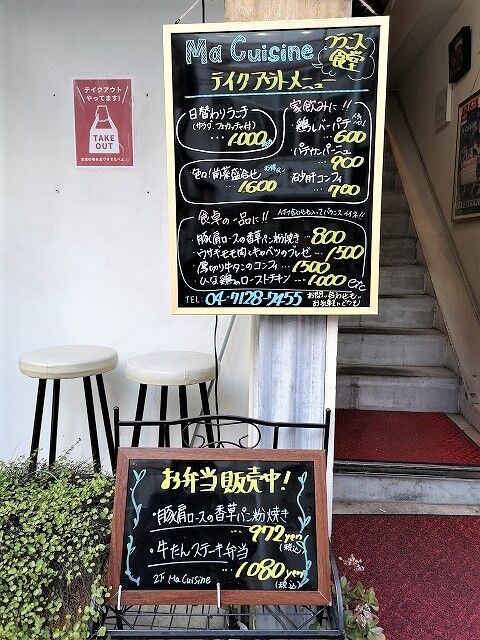 Ma Cuisine
フランス
食堂
テイクアウトメニュー
日替わりランチ
(サラダ、フォカッチャ付)
・・・1000
前菜盛合せ
・・・1600
家飲みに!!
鶏レバーパテ
・・・600
パテカンパーニュ
・・・900
砂肝コンフィ
・・・700
食卓の一品に!!
・豚肩ロースの香草パン粉焼き・・・800
・ウサギモモ肉とキャベツのブレゼ・・・1500
・厚切り牛タンのコンフィ・・・1500
・ひな鶏のローストチキン・・・1000 etc
TEL 04-7128-7455
お問い合わせも
お気軽にどうぞ
テイクアウト
やってます!
TAKE
OUT
お弁当販売中!
・豚肩ロースの香草パン粉焼き
・・・972yen
(税込)
・牛たんステーキ弁当
・・・1080yen
(税込)
2F Ma Cuisine